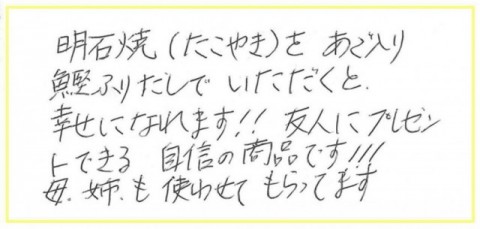 明石焼(たこやき)を あご入り
鰹ふりだしで いただくと.
幸せになれます!! 友人にプレゼン
トできる 自信の商品です!!!
母.姉.も 使わせて もらってます